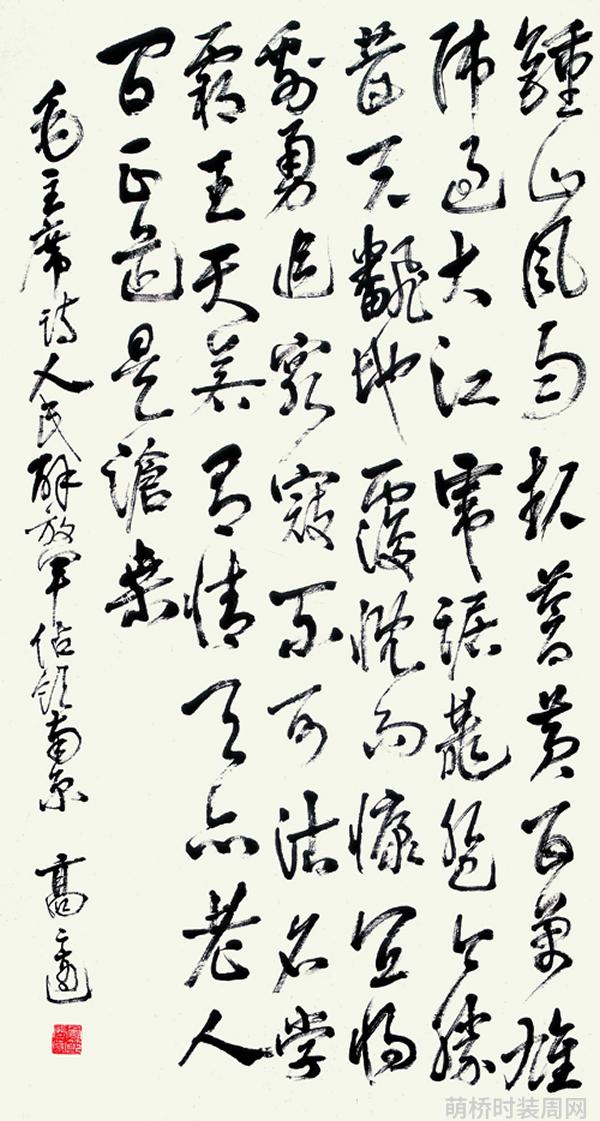 鍾山风雨起蒼黄百萬雄
师過大江虎踞龍盤今勝
昔天飜地覆慨而慷宜将
剩勇追窮寇不可沽名学
霸王天若有情天亦老人
间正道是滄桑
毛主席诗人民解放军佔领南京 高
萌桥时装周网